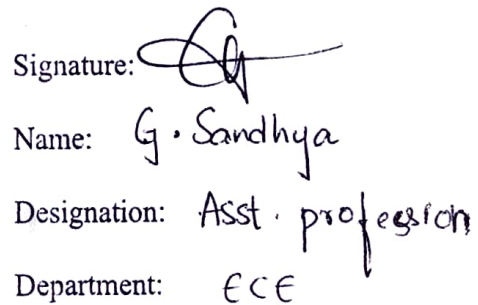 Signature:
Name: G. Sandhya
Designation: Asst. profession
Department: ECE